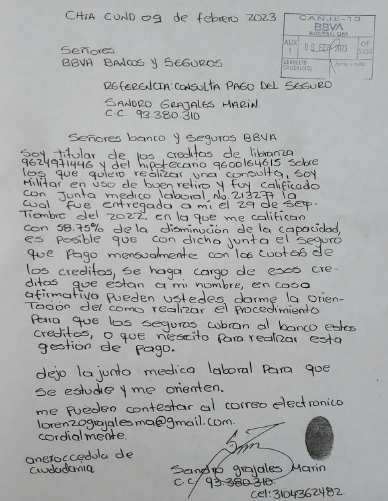 CHIA CUND 09 de febrero 2023
CANJE-13
BBVA
SUCURSAL CHIA
AUX
1
09 FEB 2023
OF
Señores
BBVA BANCOS Y SEGUROS
REFERENCIA: CONSULTA PAGO DEL SEGURO
SANDRO GRAJALES MARIN
C.C 93.380.310
Señores banco y Seguros BBVA
Soy titular de los creditos de libranza
9624971446 y del hipotecario 9600164615 sobre
los que quiero realizar una consulta, soy
Militar en uso de buen retiro y fuy calificado
con junta medico laboral No. 213277 la
cual fue entregada a mi el 29 de Sep-
tiembre del 2022, en la que me califican
con 58.75% de la disminucion de la capacidad,
es posible que con dicha junta el seguro
que pago mensualmente con las cuotas de
los creditos, se haga cargo de esos cre-
ditos que estan a mi nombre, en caso
afirmativo pueden ustedes darme la orien-
tación del como realizar el procedimiento
para que los seguros cubran al banco estos
creditos, o que nescito para realizar esta
gestión de pago.
dejo la junta medica laboral para que
se estudie y me orienten.
me pueden contestar al correo electronico
lorenzograjalesma@gmail.com.
cordialmente.
anexo:cedula de
ciudadania
Sandro grajales Marin
C.C 93.380.310.
cel:3104362482